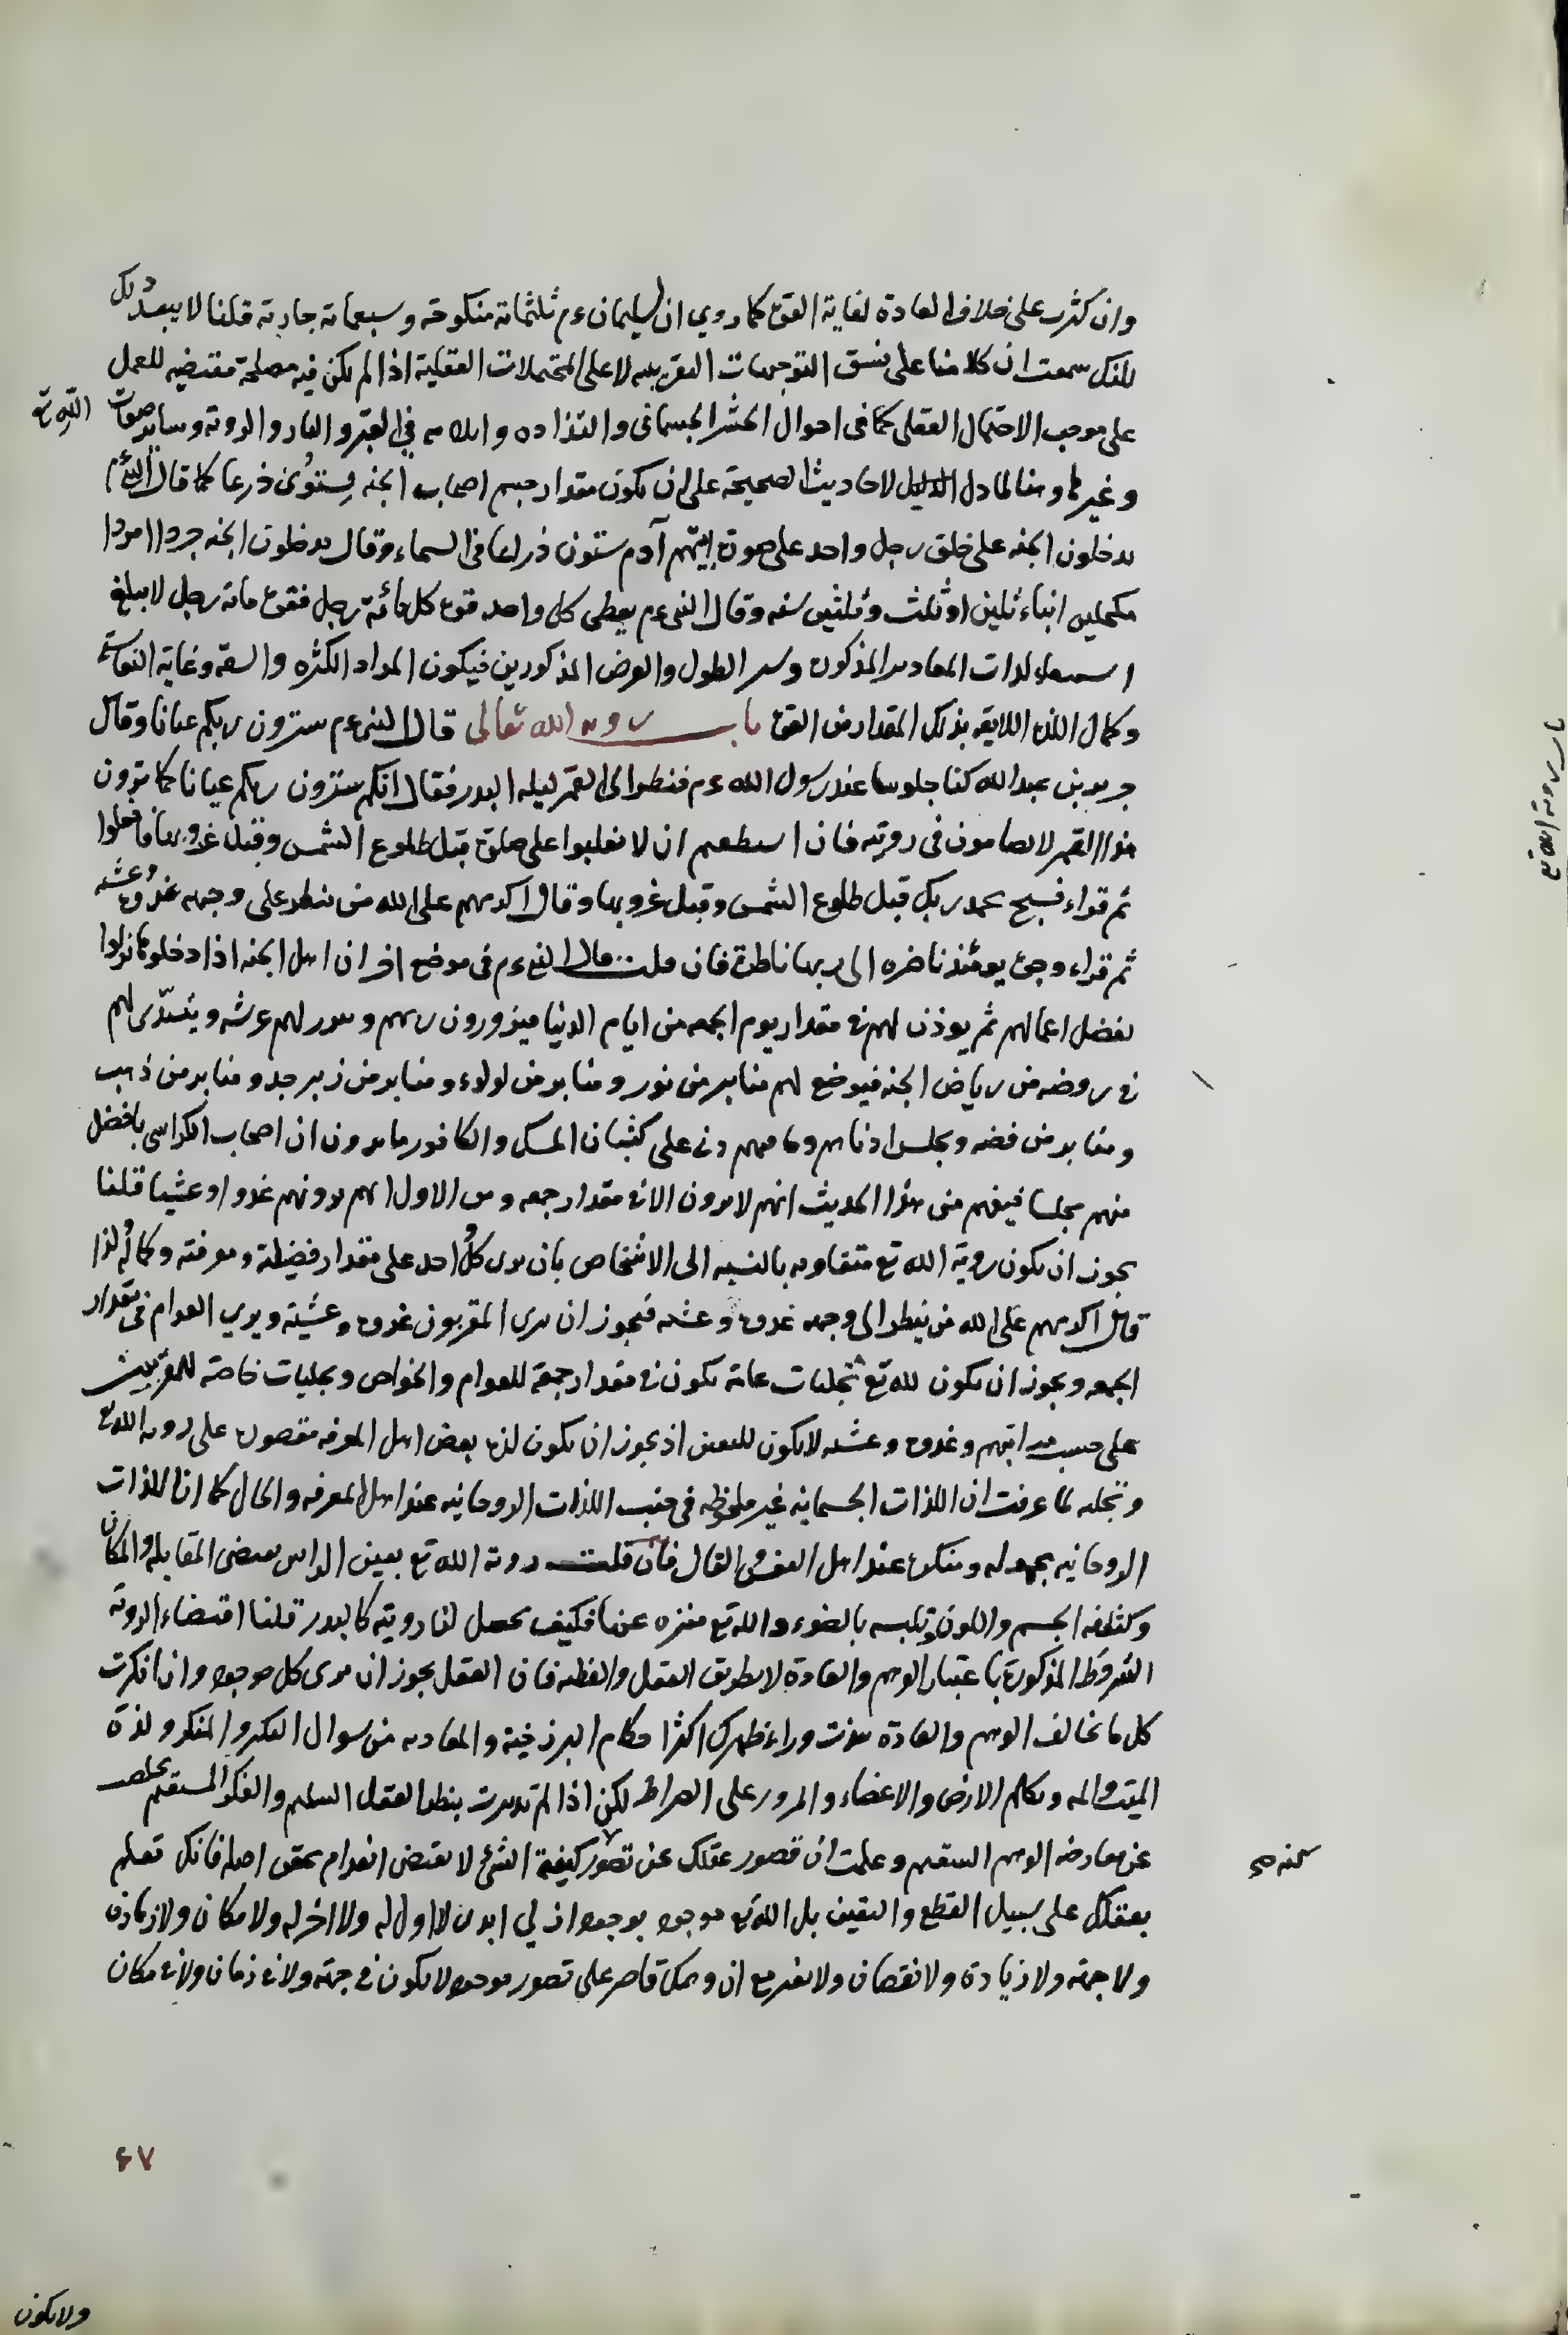 وان كثرت على خلاف العادة لغاية القوة كما روي ان لسليمان ءم ثلثمائة منكوحة وسبعمائة جارية قلنا لا يبعد ذلك
لكنك سمعت ان كلامنا على نسق التوجيهات التقريبيه لا على المحتملات العقلية اذا لم يكن فيه مصلحة مقتضيه للعمل
على موجب الاحتمال العقلى كما فى احوال الحشر الجسمانى والتذاذه وايلامه في القبر والنار والروية وساير صفات الله تع
وغيرها وهنا لما دل الاحاديث الصحيحة على ان يكون مقدار جسم اصحاب الجنه ستون ذرعا كما قال النبي ءم
يدخلون الجنه على خلق رجل واحد على صورة ابيهم آدم ستون ذراعا فى السماء وقال يدخلون الجنه جردا مردا
مكحلين ابناء ثلثين او ثلث وثلثين سنه وقال النبى ءم يعطى كل واحد قوة كل مائة رجل فقوة مائة رجل لا يبلغ
المذكورة وسر الطول والعرض المذكورين فيكون المراد الكثره والسعة وغاية
وكمال اللذة اللايقه بذلك المقدار من القوة باب روية الله تعالى قال النبى ءم سترون ربكم عيانا وقال
جرير بن عبد الله كنا جلوسا عند رسول الله ءم فنظر الى القمر ليله البدر فقال انكم سترون ربكم عيانا كما ترون
هذا القمر لا تضامون فى رويته فان استطعتم ان لا تغلبوا على صلوة قبل طلوع الشمس وقبل غروبها فافعلوا
ثم قراء فسبح بحمد ربك قبل طلوع الشمس وقبل غروبها وقال اكرمهم على الله من ينظر على وجهه غدوة وعشيه
ثم قراء وجوه يومئذ ناضره الى ربها ناظرة فان قلت قال النبى ءم فى موضع اخر ان اهل الجنه اذا دخلوها نزلوا
بفضل اعمالهم ثم يوذن لهم فى مقدار يوم الجمعه من ايام الدنيا فيزورون ربهم ويبرز لهم عرشه ويتبدّى لهم
فى روضه من رياض الجنه فيوضع لهم منابر من نور ومنابر من لولاء ومنابر من زبرجد ومنابر من ذهب
ومنابر من فضه ويجلس ادناهم وما فيهم دنى على كثبان المسك والكافور ما يرون ان اصحاب الكراسى بافضل
منهم مجلسا فيفهم من هذا الحديث انهم لا يرون الا فى مقدار جمعه ومن الاول انهم يرونهم غدوا وعشيا قلنا
يجوز ان يكون روية الله تع متفاوته بالنسبه الى الاشخاص بان يرى كل واحد على مقدار فضيلة ومعرفته وكماله لذا
قال اكرمهم على الله من ينظر الى وجهه غدوة وعشيه فيجوز ان يرى المقربون غدوة وعشية ويرى العوام فى مقدار
الجمعه ويجوز ان يكون لله تع تجليات عامة يكون فى مقدار جمعة للعوام والخواص وتجليات خاصة للمقربين
على حسب مراتبهم وغدوة وعشيه لا يكون للبعض اذ يجوز ان يكون لذة بعض اهل المعرفه مقصورة على روية الله تع
وتجليه لما عرفت ان اللذات الجسمانيه غير ملحوظه فى جنب اللذات الروحانيه عند اهل المعرفه والحال كما ان اللذات
الروحانيه مجهوله ومنكرة عند اهل القال فان قلت روية الله تع بعين الراس يقتضى المقابلة والمكان
وكثافه الجسم واللون وتلبسه بالضوء والله تع منزه عنها فكيف يحصل لنا رويته كالبدر قلنا اقتضاء الروية
الشروط المذكورة باعتبار الوهم والعادة لا بطريق العقل والفطنه فان العقل يجوز ان يرى كل موجود وان انكرت
كل ما تخالف الوهم والعادة وراء ظهرك اكثر احكام البرزخية والمعاديه من سوال النكير والمنكر ولذة
الميت والمه وتكلم الارض والاعضاء والمرور على الصراط لكن اذا لم تدبرت بنظر العقل السليم والفكر المستقيم تخلص
عن معارضه الوهم السقيم وعلمت ان قصور عقلك عن تصور كيفية الشئ لا يقتضى انعدام تحقق اصله فانك تعلم
بعقلك على سبيل القطع واليقين بل الله تع موجود بوجود ازلي ابدى لا اول له ولا اخر له ولا مكان ولا زمان
ولا جهة ولا زيادة ولا نقصان ولا تغير مع ان وهمك قاصر على تصور موجود لا يكون فى جهة ولا فى زمان ولا فى مكان
باب روية الله تع
٤٧
ولا يكون